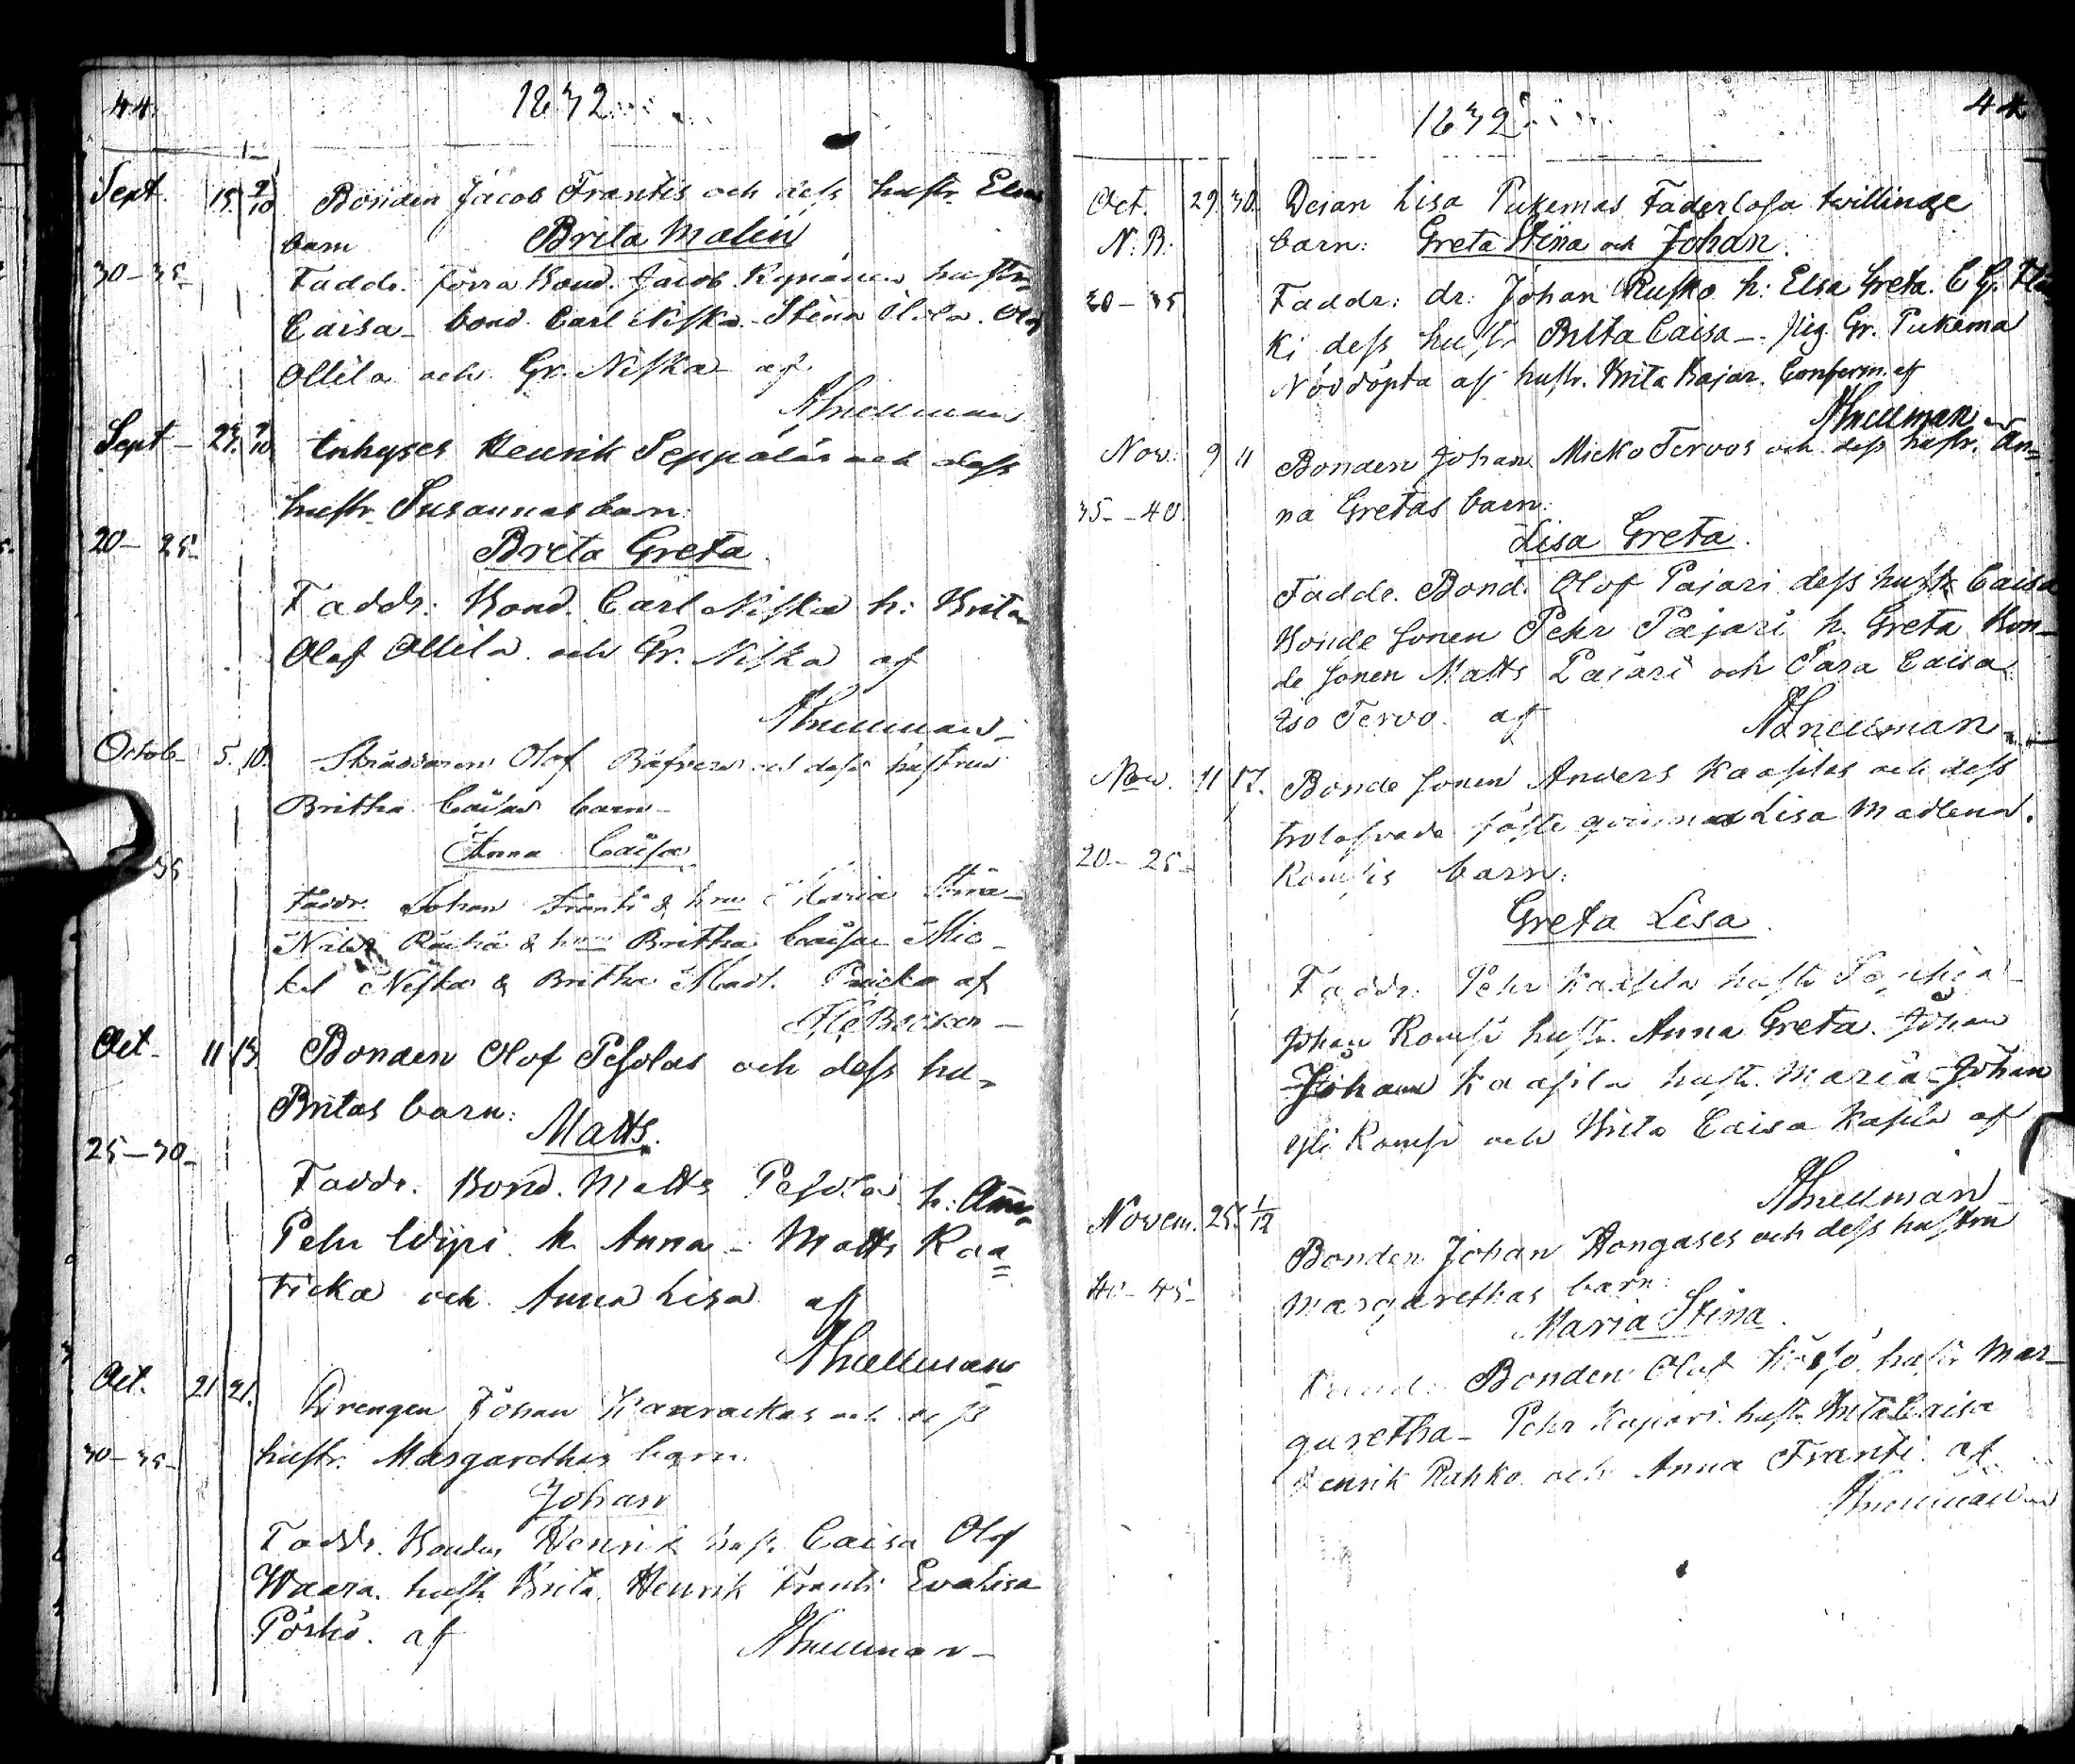 44.
1832
Sept. 15. 2/10 Bonden Jacob Frantis och dess hustr. Elsas
barn Brita Malin
30-35 Faddr. förra Bond. Jacob hustr.
Caisa - bond. Carl Niska - Stina
Ollila och Gr. Niska af
A Snellman
Sept - 27. 9/10 Inhyses Henrik Seppäläs och dess
hustr. Susannas barn:
20 - 25 - Brita Greta
Faddr: Bond. Carl Niska h: Brita
Olof Ollila och Gr. Niska af
A Snellman -
Octob - 5. 10. Olof och dess hustrus
Britha Caisas barn -
35 Anna Caisa
Faddr. Johan Franti & hru Maria Stina -
Nils & hru Britha Caisa Mic-
kel Niska & Britha Madl. af
Oct - 11 13. Bonden Olof Pesolas och dess hu-
Britas barn:
Matts.
25 - 30 -
Faddr. Bond. Matts Pesola h: Anna
Pehr h. Anna - Matts Raa=
ticka och Anna Lisa af
A Snellman
Oct. 21 21. Drengen Johan och dess
30 - 35 - hustr. Margarethas barn.
Johan
Faddr. Bonden Henrik hust. Caisa Olof
Waara. hustr. Brita. Henrik Franti Eva Lisa
Pörhö. af A Snellman -
1832
44
Oct. 29. 30. Deian Lisa Pukemas Faderlösa twillinge
N.B. barn: Greta Stina och Johan.
30 - 35 Faddr: dr: Johan Rusko h: Elsa Greta. C G.
ki dess hustr Brita Caisa - pig. Gr. Pukema
Nöddöpta af hustr. Brita Kajar. Conferm. af
A Snellman
Nov. 9 11 Bonden Johan Micko Tervos och dess hustr. An=
35 - 40. na Gretas barn:
Lisa Greta.
Faddr. Bond. Olof Pajari dess hustr. Caisa
Bonde sonen Pehr Pajari h. Greta Bon-
de sonen Matts Pajari och Sara Caisa
Iso Tervo. af A Snellman
Nov. 11 17. Bonde sonen Anders Kaasilas och dess
trolofvade fäste qvinnas Lisa Madlena.
20 - 25 - Komsis barn:
Greta Lisa.
Faddr. Pehr Kaasila hustr Sophia -
Johan Komsi hustr. Anna Greta. Johan
Johan Kaasila hustr. Maria - Johan
Yli Komsi och Brita Caisa Kasila af
A Snellman -
Novem. 25. 1/12
Bonden Johan Hongases och dess hustru
40 - 45 - Margarethas barn:
Maria Stina.
Bonden Olof hustr. Mar-
garetha - Pehr Kajari hustr Brita Caisa
Henrik Ruhko och Anna Franti af
A Snellman